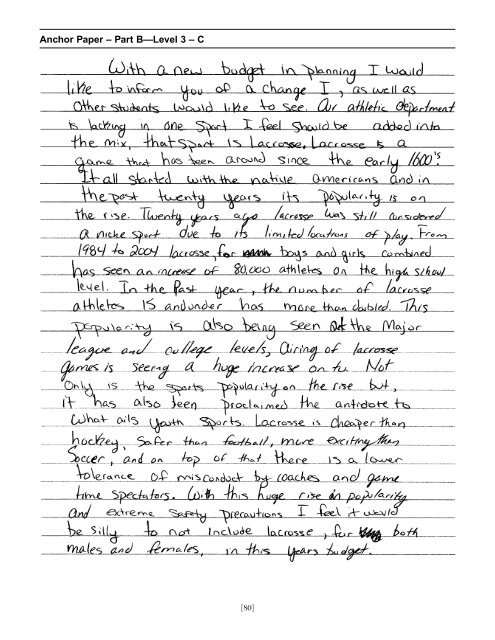 Anchor Paper – Part B—Level 3 – C
With a new budget in planning I would
like to inform you of a change I, as well as
other students would like to see. Our athletic department
is lacking in one sport I feel should be added into
the mix, that sport is lacrosse. Lacrosse is a
game that has been around since the early 1600's.
It all started with the native americans and in
the past twenty years its popularity is on
the rise. Twenty years ago lacrosse was still considered
a niche sport due to its limited locations of play. From
1984 to 2004 lacrosse, for boys and girls combined
has seen an increase of 80,000 athletes on the high school
level. In the past year, the number of lacrosse
athletes 15 and under has more than doubled. This
popularity is also being seen at the Major
league and college levels, Airing of lacrosse
games is seeing a huge increase on t.v. Not
Only is the sports popularity on the rise but,
it has also been proclaimed the antidote to
what ails youth sports. Lacrosse is cheaper than
hockey, safer than football, more exciting than
Soccer, and on top of that there is a lower
tolerance of misconduct by coaches and game
time spectators. With this huge rise in popularity
and extreme safety precautions I feel it would
be silly to not include lacrosse, for both
males and females, in this years budget.
[80]